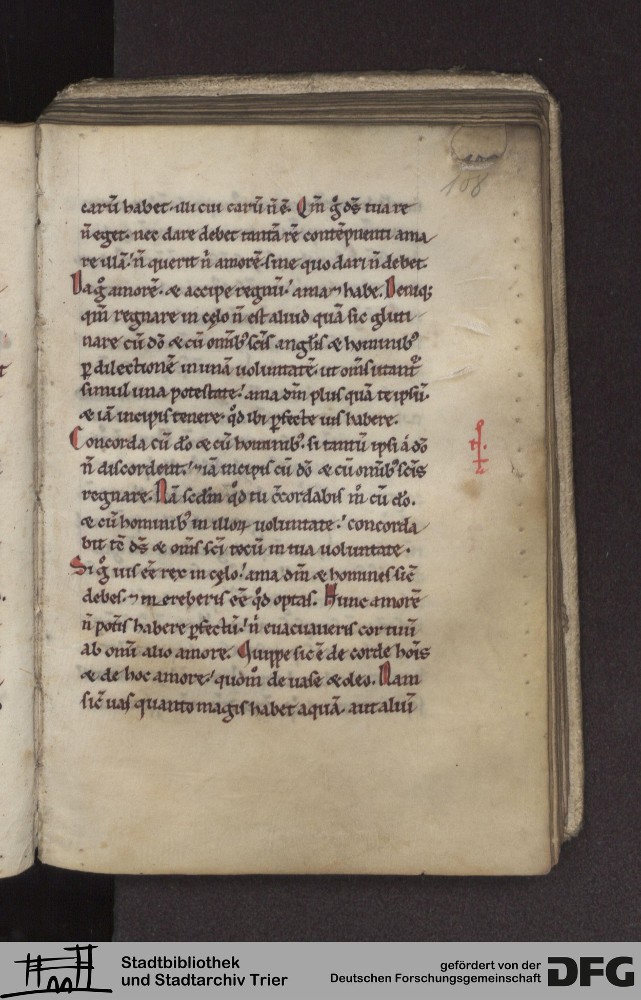 108
carū habet · illi cui carū n̄ ē. Qm̄ gͦ ds̄ tua re
n̄ eget · nec dare debet tantā rē contēpnenti ama
re illā · n̄ querit nͥ amorē · sine quo dari n̄ debet ·
Da gͦ amorē · & accipe regnū · ama ⁊ habe. Deniq;
qm̄ regnare in cęlo n̄ est aliud quā sic gluti
nare cū dō & cū omībꝰ scīs angłis & hominibꝰ
ꝑ dilectionē in unā voluntatē · ut om̄s utantᷣ
simul una potestate · ama dm̄ plus quā te ipsū ·
& iā incipis tenere · qd̄ ibi ꝑfecte uis habere.
Concorda cū do & cū hominibꝰ · si tantū ipsi á dō
n̄ discordent · ⁊ iā incipis cū dō & cū omībꝰ scīs
regnare. Nā scdm̄ qd̄ tu c̄cordabis m̊ cū do.
& cū hominibꝰ in illoꝝ uoluntate · concorda
bit tc̄ ds̄ & om̄s sci tocū in tua uoluntate ·
Si gͦ uis eē rex in cęlo · ama dm̄ & homines sic̄
debes · ⁊ mereberis eē qd̄ optas. Hunc amorē
n̄ potis habere ꝑfectū · nͥ euacuaueris cor tuū
ab omī alio amore. Quippe sic ē de corde hoīs
& de hoc amore · quōm̄ de uase & oleo. Nam
sic̄ uas quanto magis habet aquā · aut aliū
Stadtbibliothek
und Stadtarchiv Trier
gefördert von der
Deutschen Forschungsgemeinschaft
DFG